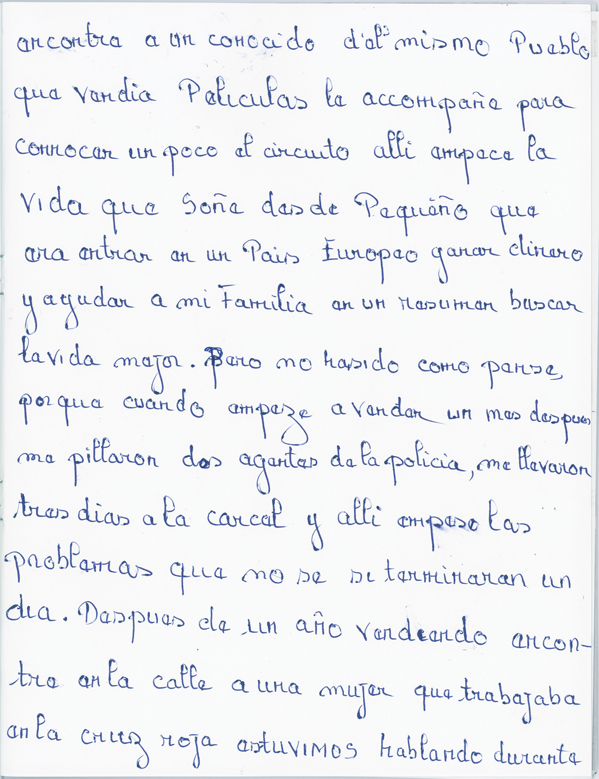 encontre a un conocido d'el mismo Pueblo
que vendia Peliculas le accompañe para
connocer un poco el circuito alli empece la
vida que Soñe desde Pequeño que
era entrar en un Pais Europeo ganar dinero
y agudar a mi Familia en un resumen buscar
la vida mejor. Pero no ha sido como pense,
porque cuando empeze a vender un mes despues
me pillaron dos agentes de la policia, me llevaron
tres dias a la carcel y alli empeso las
problemas que no se si terminaran un
dia. Despues de un año vendeando encon-
tre en la calle a una mujer que trabajaba
en la cruz roja estuvimos hablando durante